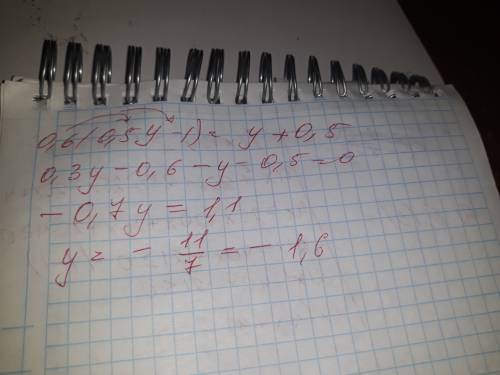 0,6(0,5y-1)= y+0,5
0,3y-0,6-y-0,5=0
-0,7y=1,1
y= - 11/7 = - 1,6